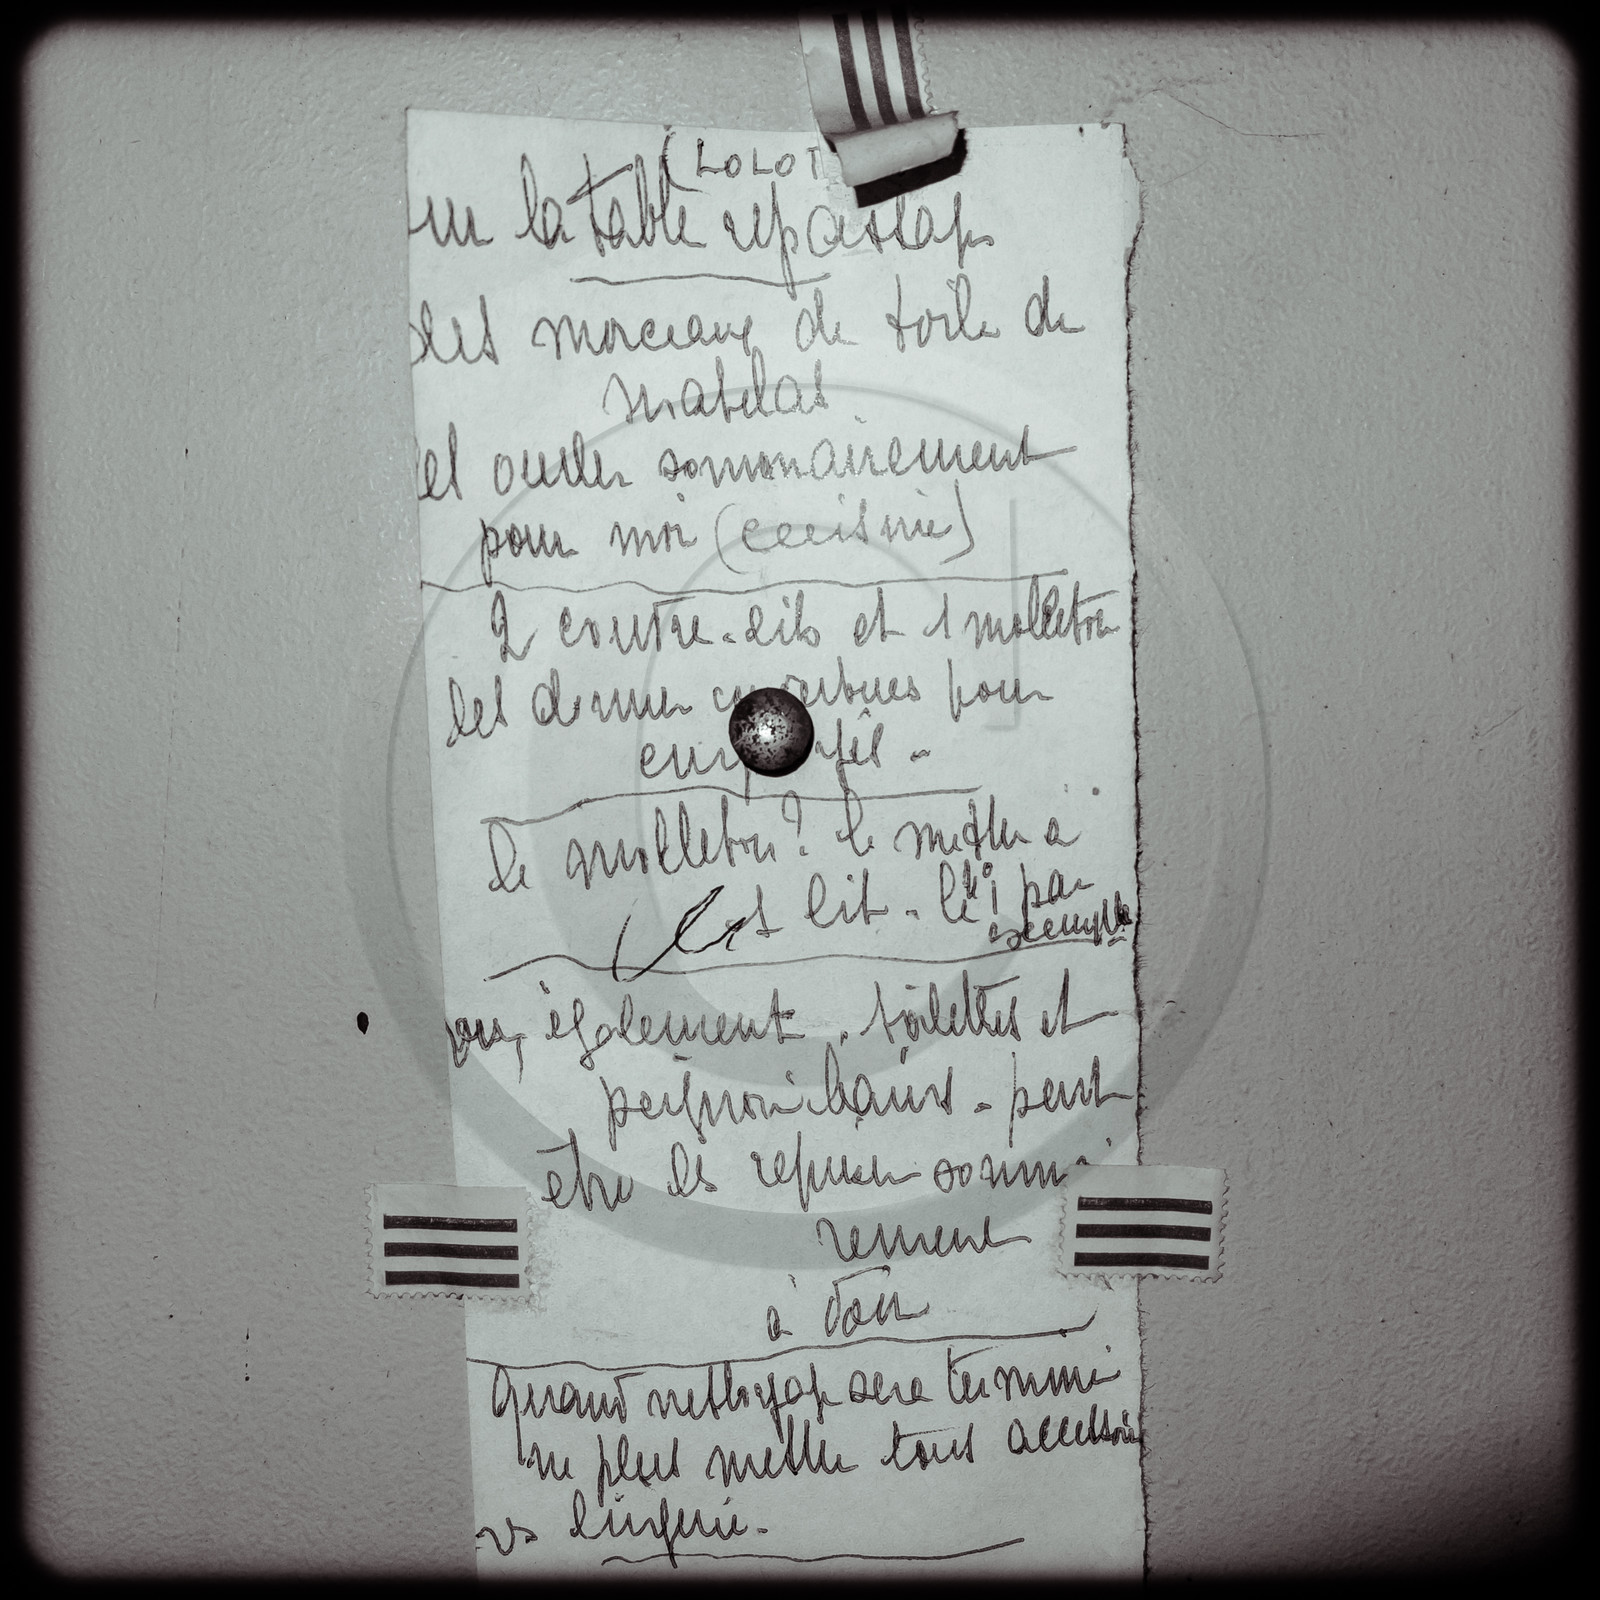 (LOLOT
sur la table repassage
des morceaux de toile de
matelas
et ourler sommairement
pour moi (cuisine)
2 couvre-lits et 1 molleton
les donner pour
de molleton? le mettre à
lit - le par
exemple
également. toilettes et
peignoir bains - peut
être les repriser somm
rement
à voir
Quand nettoyage sera terminé
ne plus mettre tous accessoir
lingerie.